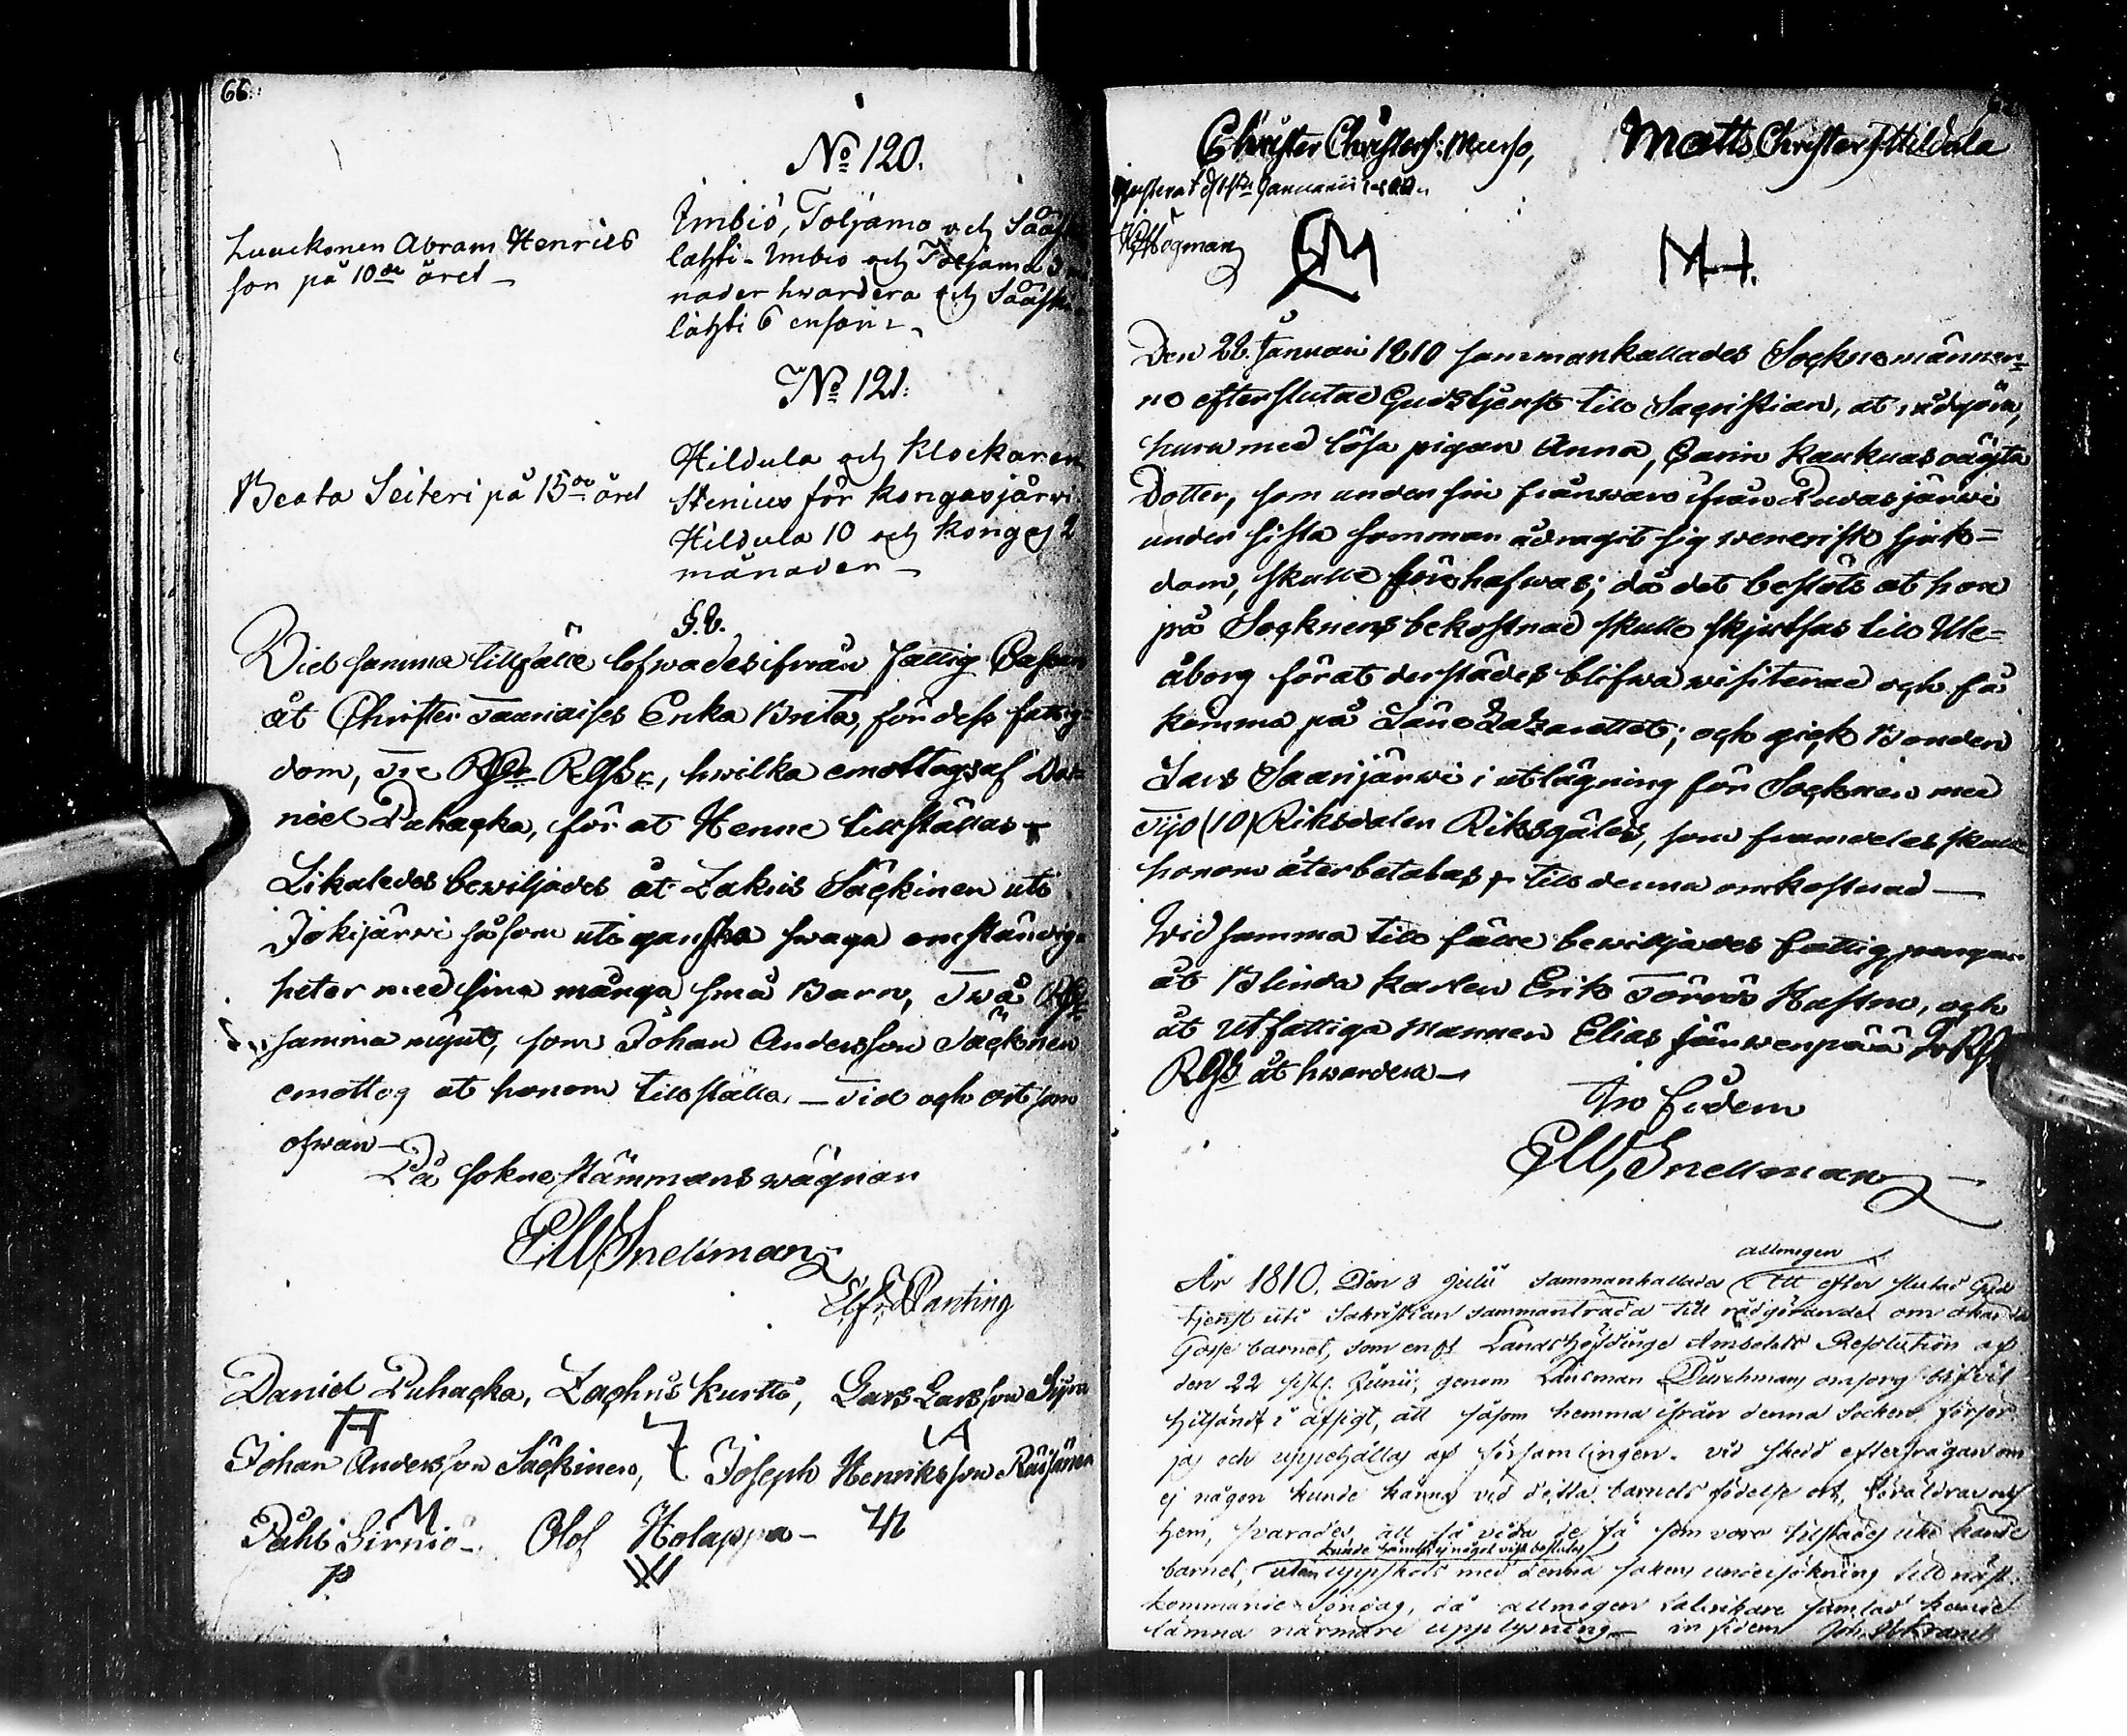 66.
No 120.
Luuckonen Abram Henrics
son på 10de året —
Imbiö, Toljamo och Sääsk
lahti - Imbio och Toljama 3 må
nader hwardera och Sääsk
lahti 6 ensam —
No 121.
Beata Seiteri på 15de året
Hildula och Klockaren
Stenius för kongasjärvi
Hildula 10 och kongas 2
månader —
§. 8.
Vid samma tillfälle lofwades ifrån fattig Cassan
åt Christer Taanaises Enka Brita, för dess fattig-
dom, Tre Rdr RGs, hwilka emottogs af Da-
niel Puhacka, för at Henne tillställas —
Likaledes bewiljades åt Zakris Säckinen uti
Jokijärwi såsom uti ganska swaga omständig-
heter med sina många små Barn, Två Rdr
samma mynt, som Johan Andersson Säckinen
emottog at honom tillställa. — Tid och ort som
ofwan —
På sokne stämmans wägnar
E W Snellman
Daniel Puhacka, Zachris Kurtto, Lars Larsson
Johan Andersson Säckinen, Joseph Henriksson Räisänen
Påhl Sirniö — Olof Holappa —
Christer Christers: Murso, Matts Christers: Hildula
Justerat d 1ste Januarii
Högman
CM
MH.
Den 28. Januari 1810 sammankallades Socknemännen-
ne efter slutad Gudstjenst till Sacristian, at rådgöra,
huru med lösa pigan Anna, Carin Kaukuas oägta
Dotter, som under sin frånwaro ifrån Pudasjärwi
under sista sommar ådragit sig venerisk sjuk-
dom, skulle förehafwas; då det beslöts at hon
på Socknens bekostnad skulle skjutsas till Ule-
åborg för at derstädes blifwa visiterad och få
komma på Läns Lazarettet; och gick Bonden
Lars Saarijärwi i utlägning för Socknen med
Tijo (10) Riksdaler Riksgälds, som framdeles skall
honom återbetalas — till denna omkostnad —
Wid samma tillfälle bewiljades fattig pengar
åt Blinda karlen Erik Törrö Hastu, och
åt utfattiga Mannen Elias Järwenpää
RGs åt hwardera —
In fidem
E W Snellman
allmogen
År 1810. Den 8 Julii sammankallades att efter slutad Gud
tjenst uti Sakristian sammanträda till rådgörandet om
Gosse barnet, som enl. Landshöfdinge Ambetets Resolution af
den 22 sistl. Junii, genom Länsman omsorg blifvit
hitsändt i afsigt, att såsom hemma ifrån denna Socken, försör-
jas och uppehållas af församlingen. Vid skedd efterfrågan om
ej någon kunde känna vid detta barnets födelse ort, föräldrar
hem, svarades att så vida de få som voro tillstädes icke kände
kunde ej något visst beslutas
barnet, utan uppsköts med denna sakens undersökning till näst-
kommande Söndag, då allmogen talrikare samlad kunde
lämna närmare upplysning — in fidem Joh.